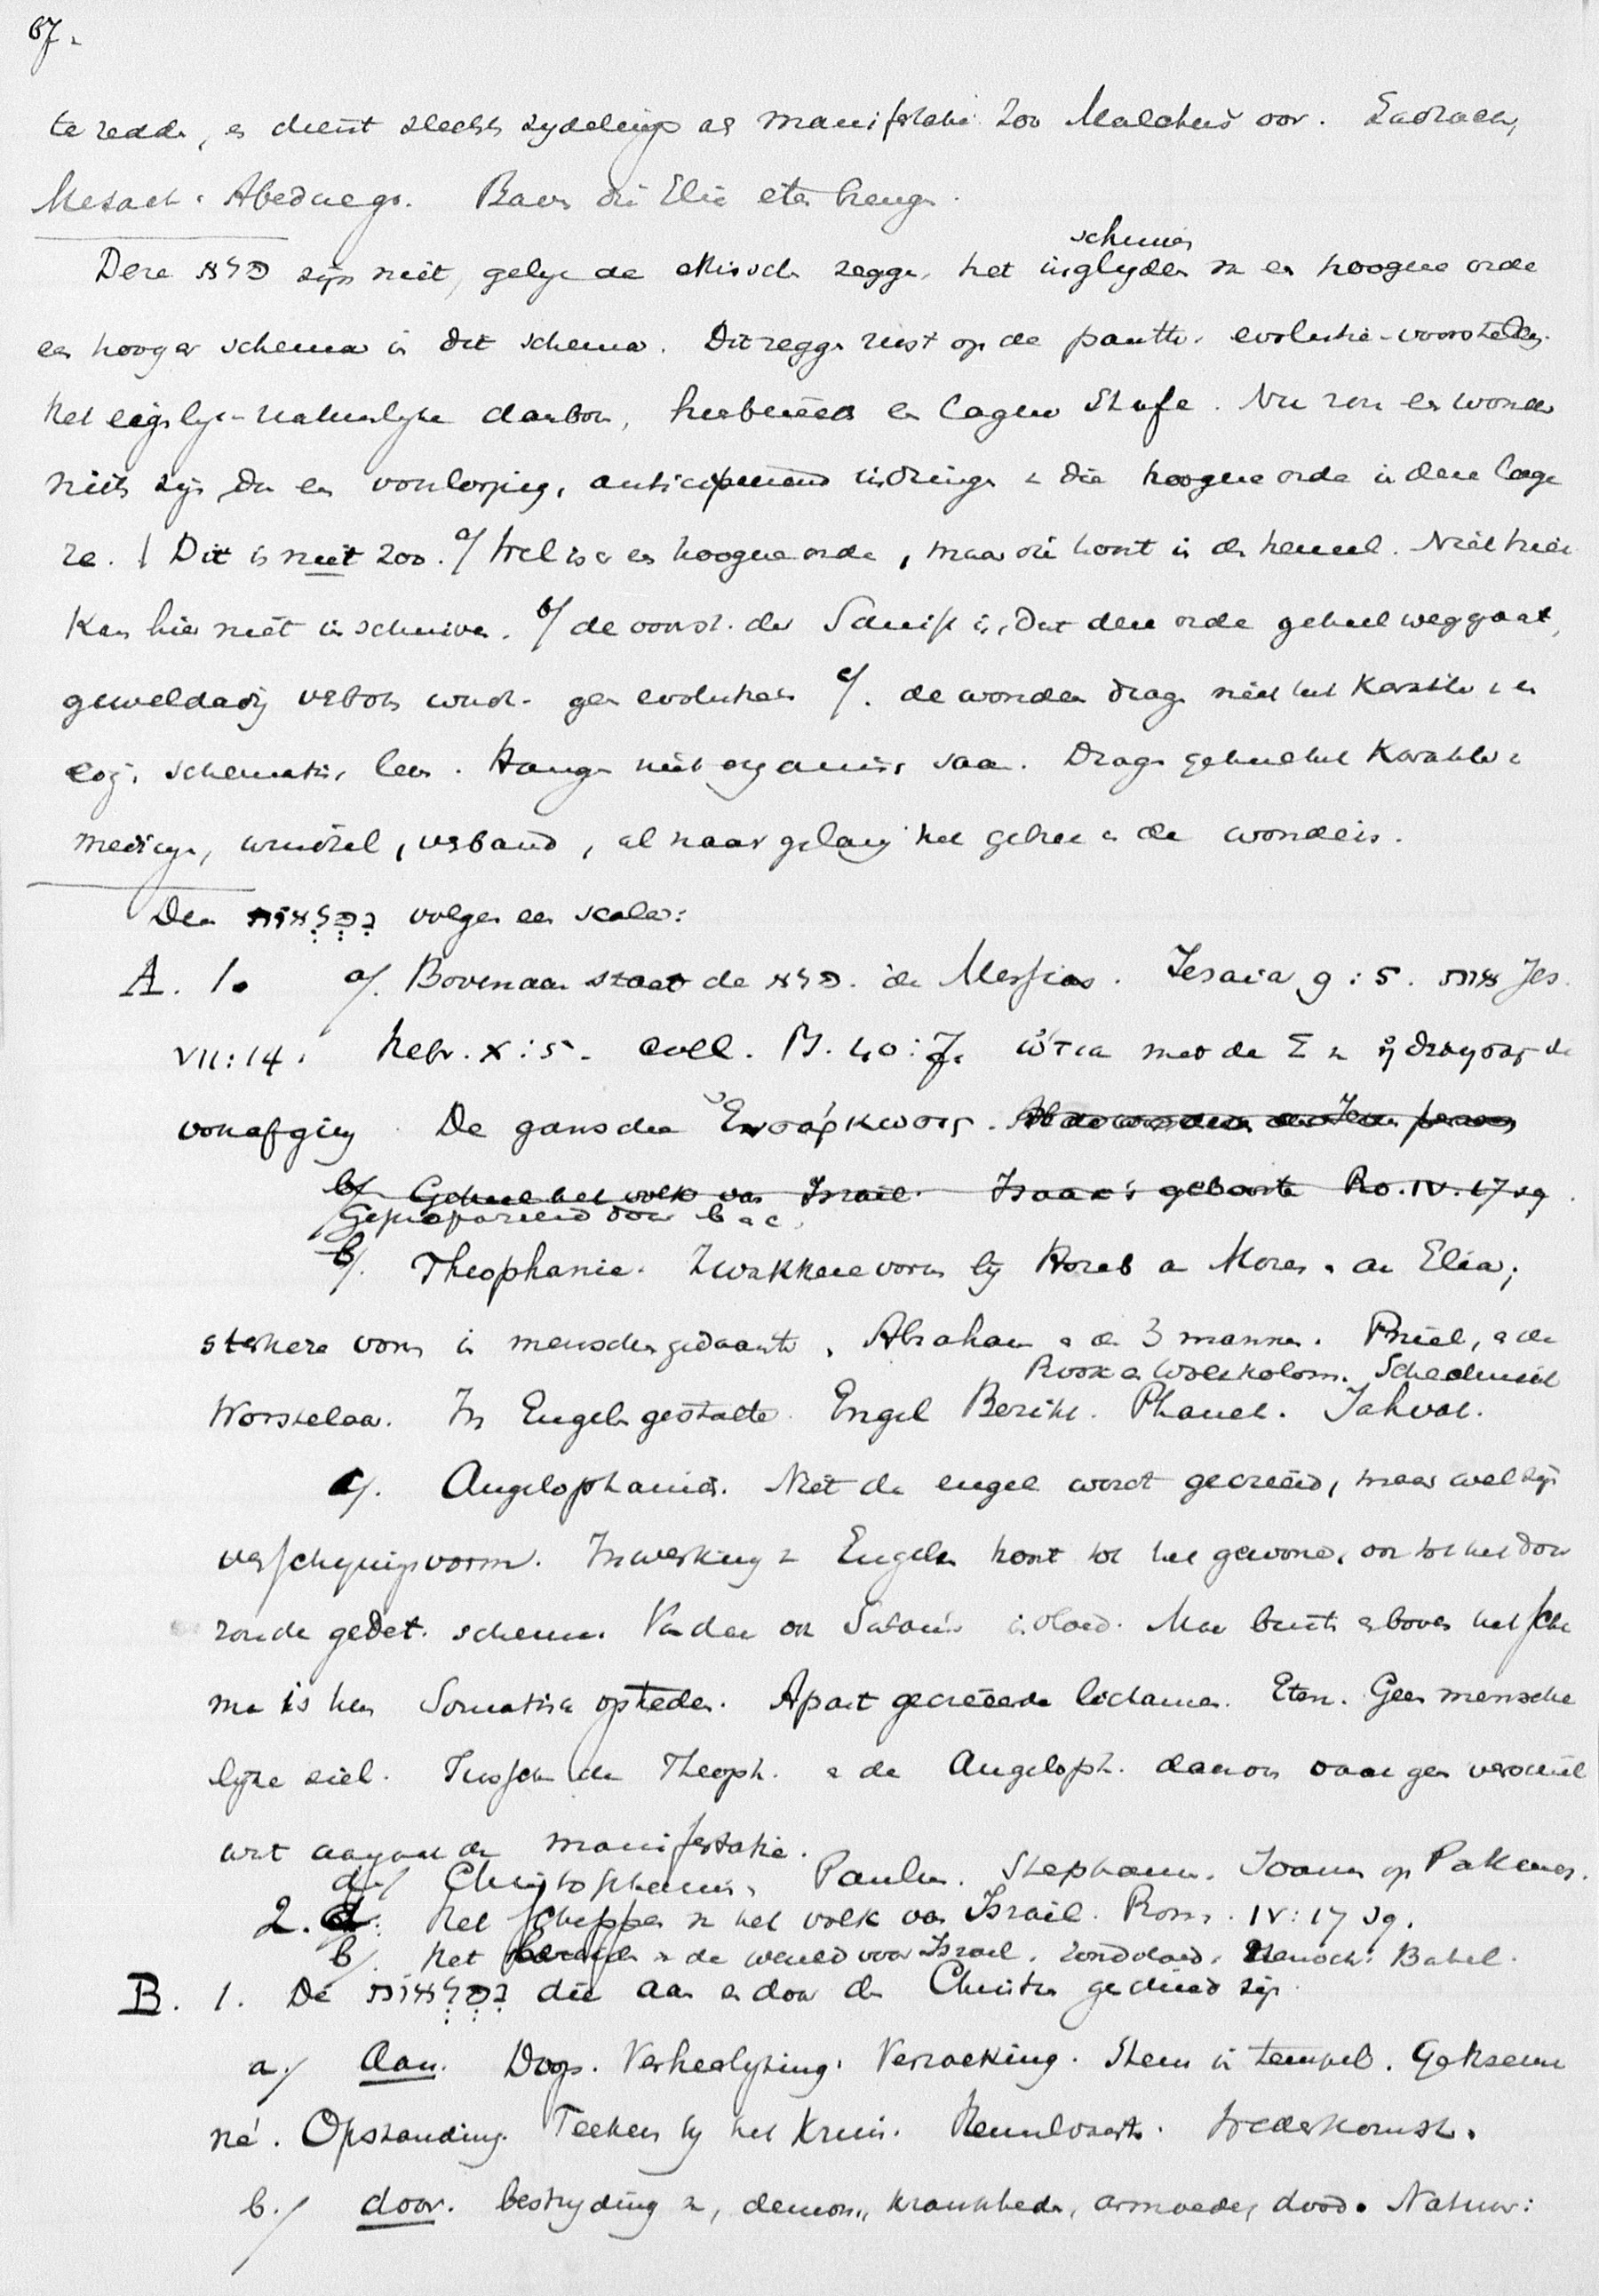 67.
te redde, e dient slechts zydelings als manifestatie zoo Malchus' oor. Sadrach,
Mesach. Abednego. Raven die Elia eten brenge.
Deze פלא zijn niet, gelijk de ethische zegge, het inglyden v. een hoogere orde
schuiven
een hooger schema in dit schema. Dit zegge rust op de panth. evolutie-voorstelling.
Het eigelyk-natuurlyke daarboven, hierbeneden een lagere Stufe. Nu zou een wonder
niets zijn dan een voorloopig, anticipeerend indringe v. die hoogere orde in deze lage
re. Dit is niet zoo. a/ Wel is er een hoogere orde, maar die hoort in de hemel. Niet hier
Kan hier niet in schuiven. b/ de voorst. der Schrift is, dat deze orde geheel weggaat,
geweldadig verbroken wordt. geen evolutie c/. de wonderen drage niet het Karakter v. een
log. schematis. leer. Hange niet organis. saam. Drage geheel het Karakter v.
medicijn, windsel, verband, al naar gelang het gebrek en de wonde is.
Deze נפלאות volgen een scala:
A. 1. a/. Bovenaan staat de פלא. in de Messias. Jesaia 9:5. אות Jes.
VII:14. Hebr. X:5. coll. Ps. 40:7. ὠτια met de Σ v. ἠθέλησας de
voorafging. De gansche Ἐνσάρκωσις.
b/ Geheel het volk van Israël. Izaak's geboorte Ro. IV. 17 sq.
Gepraepareerd door b en c.
b/. Theophanie. Zwakkere vorm by Horeb aan Mozes. aan Elia;
sterkere vorm in menschengedaante. Abraham en de 3 mannen. Pniel, en de
Rook en Wolkkolom. Schechina
Worstelaar. In Engelen gestalte. Engel Berith. Phanel. Jahvah.
c/. Angelophanie. Niet de engel wordt gecreëerd, maar wel zijn
verschyningsvorm. Inwerking v. Engelen hoort tot het gewone, ook tot het door
zonde gedet. schema. Vandaar ook Satans invloed. Maar buiten en boven het sche
ma is hun Somatisch optreden. Apart gecreëerde lichamen. Eten. Geen mensche
lyke ziel. Tusschen de Theoph. en de Angeloph. daarom vaak geen verschil
wat aangaat de manifestatie.
d/ Christophanie, Paulus. Stephanus. Joannes op Patmos.
2. a. Het scheppen v. het volk van Israël. Rom. IV:17 sq.
b/. Het v. de wereld voor Israel. Zondvloed. Henoch. Babel.
B. 1. De נפלאות die aan en door den Christus geschied zijn.
a./ Aan. Doop. Verheerlyking. Verzoeking. Stem in tempel. Gethsema
né. Opstanding. Teeken by het Kruis. Hemelvaart. Wederkomst.
b./ door. bestryding v., demon., krankheden, armoede, dood. Natuur: